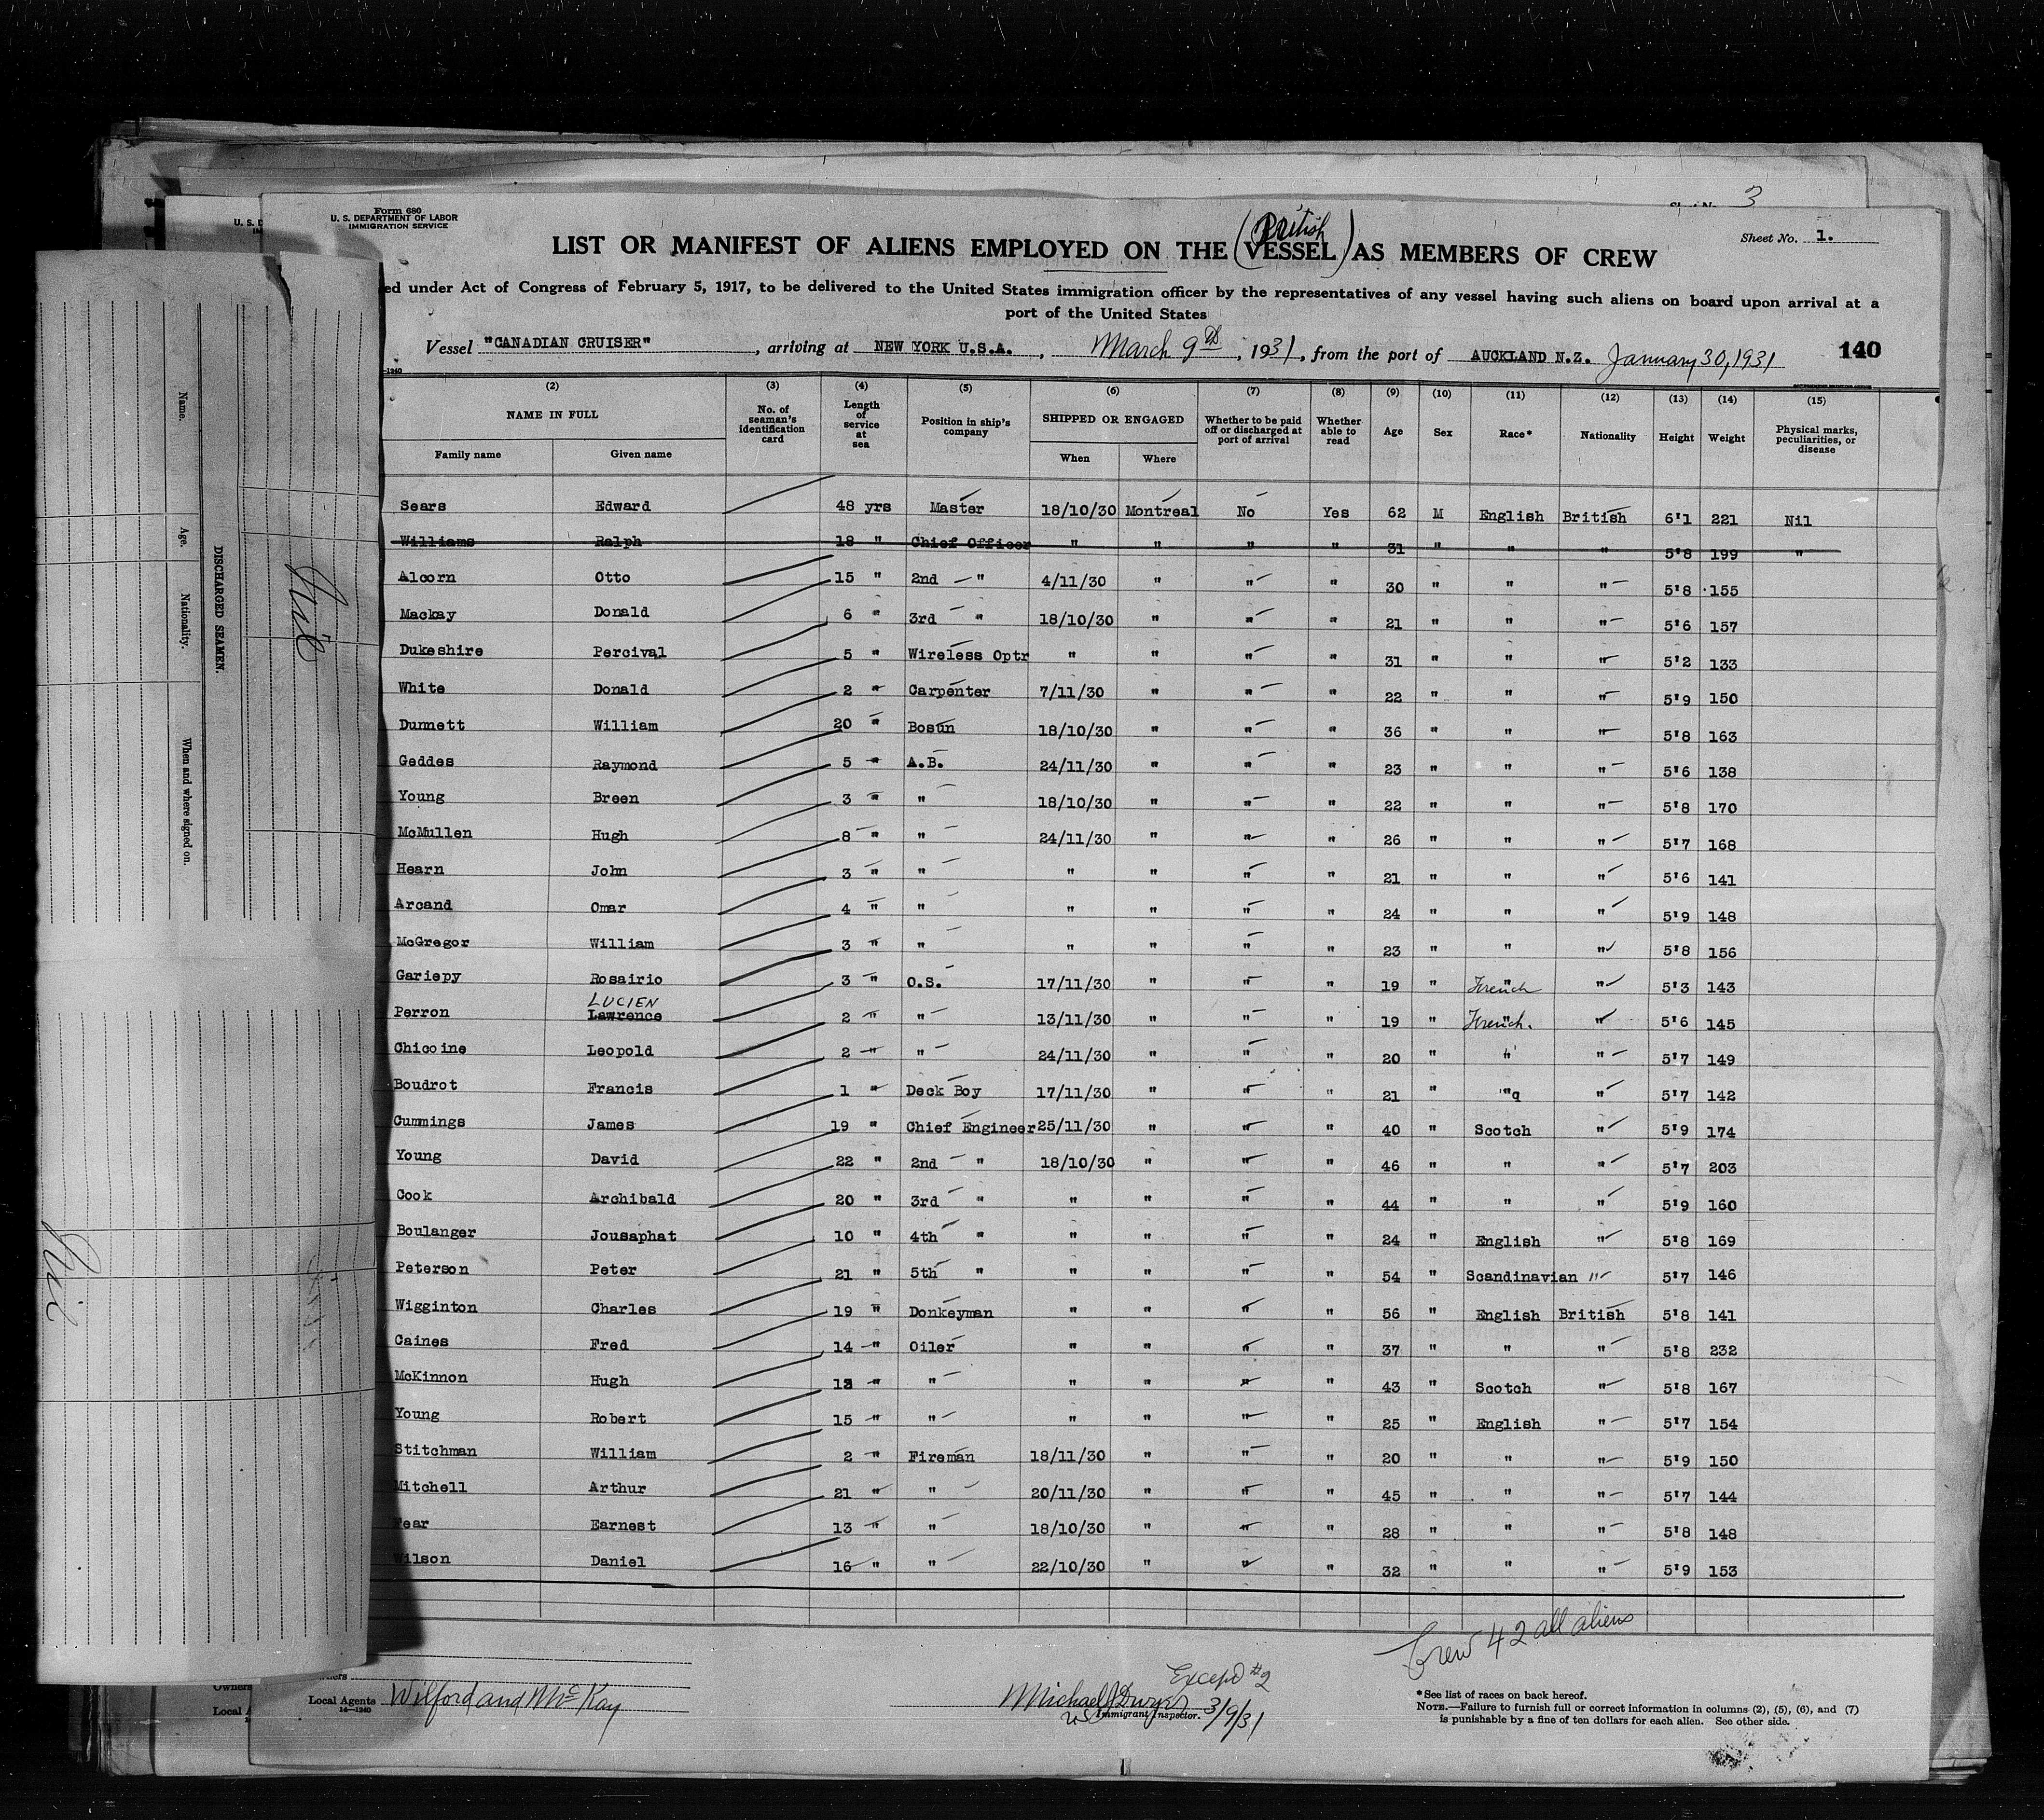 3
Form 680
U. S. DEPARTMENT OF LABOR
IMMIGRATION SERVICE
Sheet No. 1.
British
LIST OR MANIFEST OF ALIENS EMPLOYED ON THE (VESSEL) AS MEMBERS OF CREW
ed under Act of Congress of February 5, 1917, to be delivered to the United States immigration officer by the representatives of any vessel having such aliens on board upon arrival at a
port of the United States
Vessel "CANADIAN CRUISER", arriving at NEW YORK U.S.A., March 9th, 1931, from the port of AUCKLAND N.Z. January 30, 1931 140
(2) (3) (4) (5) (6) (7) (8) (9) (10) (11) (12) (13) (14) (15)
NAME IN FULL No. of seaman's identification card Length of service at sea Position in ship's company SHIPPED OR ENGAGED Whether to be paid off or discharged at port of arrival Whether able to read Age Sex Race* Nationality Height Weight Physical marks, peculiarities, or disease
Family name Given name When Where
Sears Edward 48 yrs Master 18/10/30 Montreal No Yes 62 M English British 6'1 221 Nil
Williams Ralph 18 " Chief Officer " " " " 31 " " " 5'8 199 "
Alcorn Otto 15 " 2nd " 4/11/30 " " " 30 " " " 5'8 155
Mackay Donald 6 " 3rd " 18/10/30 " " " 21 " " " 5'6 157
Dukeshire Percival 5 " Wireless Optr " " " " 31 " " " 5'2 133
White Donald 2 " Carpenter 7/11/30 " " " 22 " " " 5'9 150
Dunnett William 20 " Bosun 18/10/30 " " " 36 " " " 5'8 163
Geddes Raymond 5 " A.B. 24/11/30 " " " 23 " " " 5'6 138
Young Breen 3 " " 18/10/30 " " " 22 " " " 5'8 170
McMullen Hugh 8 " " 24/11/30 " " " 26 " " " 5'7 168
Hearn John 3 " " " " " " 21 " " " 5'6 141
Arcand Omar 4 " " " " " " 24 " " " 5'9 148
McGregor William 3 " " " " " " 23 " " " 5'8 156
Gariepy Rosairio 3 " O.S. 17/11/30 " " " 19 " French " 5'3 143
LUCIEN
Perron Lawrence 2 " " 13/11/30 " " " 19 " French. " 5'6 145
Chicoine Leopold 2 " " 24/11/30 " " " 20 " " " 5'7 149
Boudrot Francis 1 " Deck Boy 17/11/30 " " " 21 " "q " 5'7 142
Cummings James 19 " Chief Engineer 25/11/30 " " " 40 " Scotch " 5'9 174
Young David 22 " 2nd " 18/10/30 " " " 46 " " " 5'7 203
Cook Archibald 20 " 3rd " " " " " 44 " " " 5'9 160
Boulanger Jousaphat 10 " 4th " " " " " 24 " English " 5'8 169
Peterson Peter 21 " 5th " " " " " 54 " Scandinavian " 5'7 146
Wigginton Charles 19 " Donkeyman " " " " 56 " English British 5'8 141
Caines Fred 14 " Oiler " " " " 37 " " " 5'8 232
McKinnon Hugh " " " " " " 43 " Scotch " 5'8 167
Young Robert 15 " " " " " " 25 " English " 5'7 154
Stitchman William 2 " Fireman 18/11/30 " " " 20 " " " 5'9 150
Mitchell Arthur 21 " " 20/11/30 " " " 45 " " " 5'7 144
Fear Earnest 13 " " 18/10/30 " " " 28 " " " 5'8 148
Wilson Daniel 16 " " 22/10/30 " " " 32 " " " 5'9 153
Crew 42 all aliens
Except #2
Local Agents Wilford and McKay
14—1240
Michael J
US Immigrant Inspector. 3/9/31
*See list of races on back hereof.
NOTE.—Failure to furnish full or correct information in columns (2), (5), (6), and (7)
is punishable by a fine of ten dollars for each alien. See other side.
DISCHARGED SEAMEN.
Name. Age. Nationality. When and where signed on.
Nil
Nil